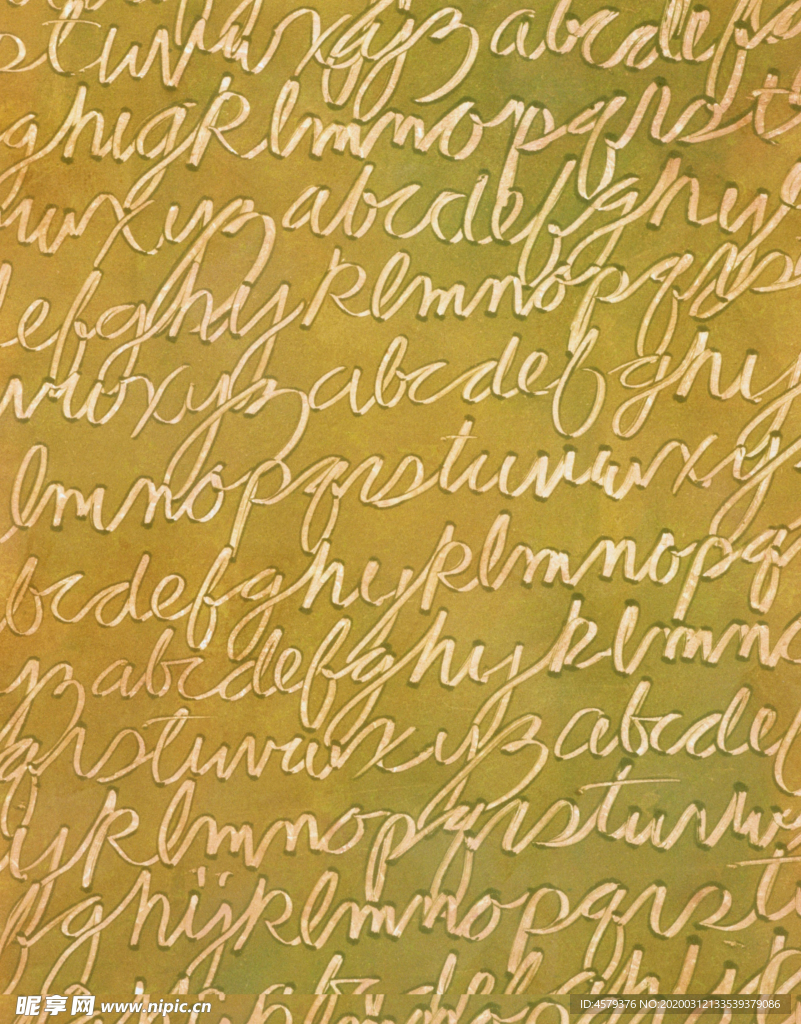 stuvwxyz abcdef
ghijklmnopqrst
uvwxyz abcdefghij
defghijklmnopqrs
uvwxyz abcdefghij
lmnopqrstuvwxyz
bcdefghijklmnopqr
yz abcdefghijklmno
qrstuvwxyz abcdef
ijklmnopqrstuvw
fghijklmnopqrst
昵享网 www.nipic.cn
ID:4579376 NO:20200312133539379086